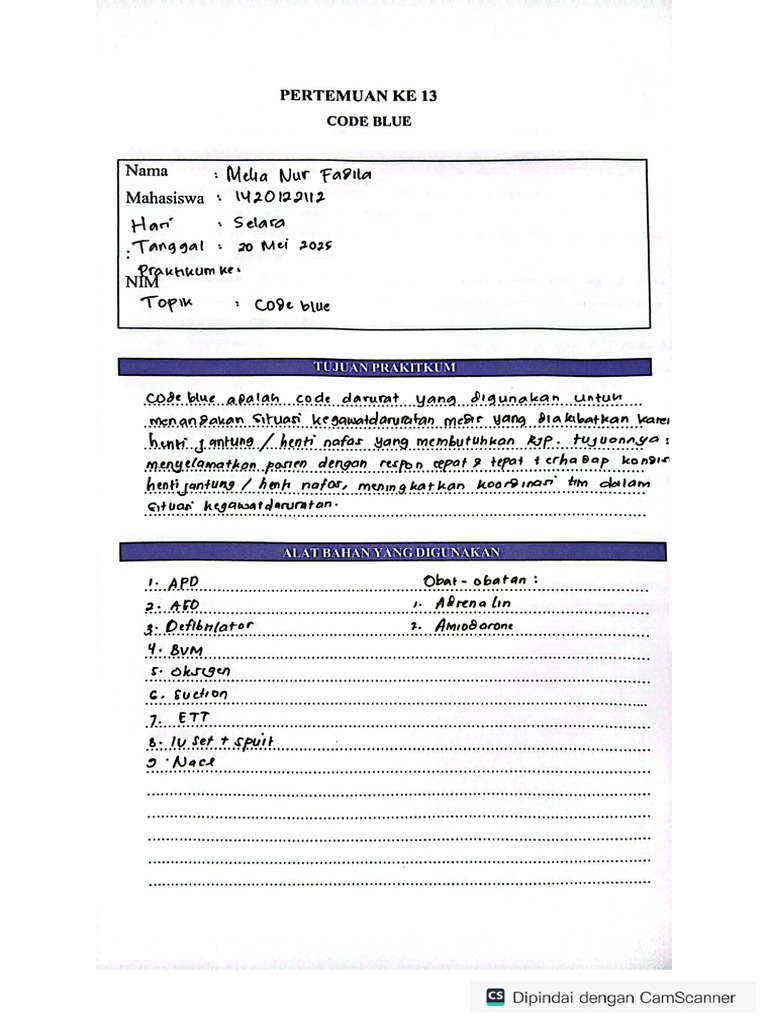 PERTEMUAN KE 13
CODE BLUE
Nama : Melia Nur Fadila
Mahasiswa : 1420122112
Hari : Selasa
: Tanggal : 20 Mei 2025
Praktikum ke :
NIM
Topik : Code blue
TUJUAN PRAKITKUM
Code blue adalah code darurat yang digunakan untuk
menandakan situasi kegawatdaruratan medis yang diakibatkan kare
henti jantung / henti nafas yang membutuhkan RJP. tujuannya :
menyelamatkan pasien dengan respon cepat & tepat terhadap kondis
henti jantung / henti nafas, meningkatkan koordinasi tim dalam
situasi kegawatdaruratan.
ALAT BAHAN YANG DIGUNAKAN
1. APD Obat - obatan :
2. AED 1. Adrenalin
3. Defibrilator 2. Amiodarone
4. BVM
5. Oksigen
6. Suction
7. ETT
8. IV set + spuit
9. Nacl
CS Dipindai dengan CamScanner